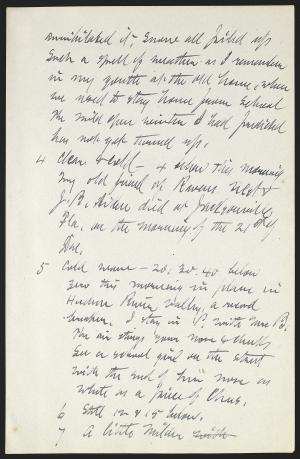 annihilated it; snow all piled up.
Such a spell of weather as I remember
in my youth at the old home, when
we used to stay home from school
The mild open winter I had predicted
has not yet turned up.
4 Clear & cold — 4 below this morning
my old friend of Ravens
J. B. died at Jacksonville
Fla, on the morning of the 21st of
Dec,
5 Cold wave — 20, 30, 40 below
zero this morning in places in
Hudson River Valley, a record
breaker. I stay in P. with Mrs B.
The air stings your nose & cheeks
See a school girl on the street
with the end of her nose as
white as a piece of
6 Still 12 & 15 below.
7 A little milder